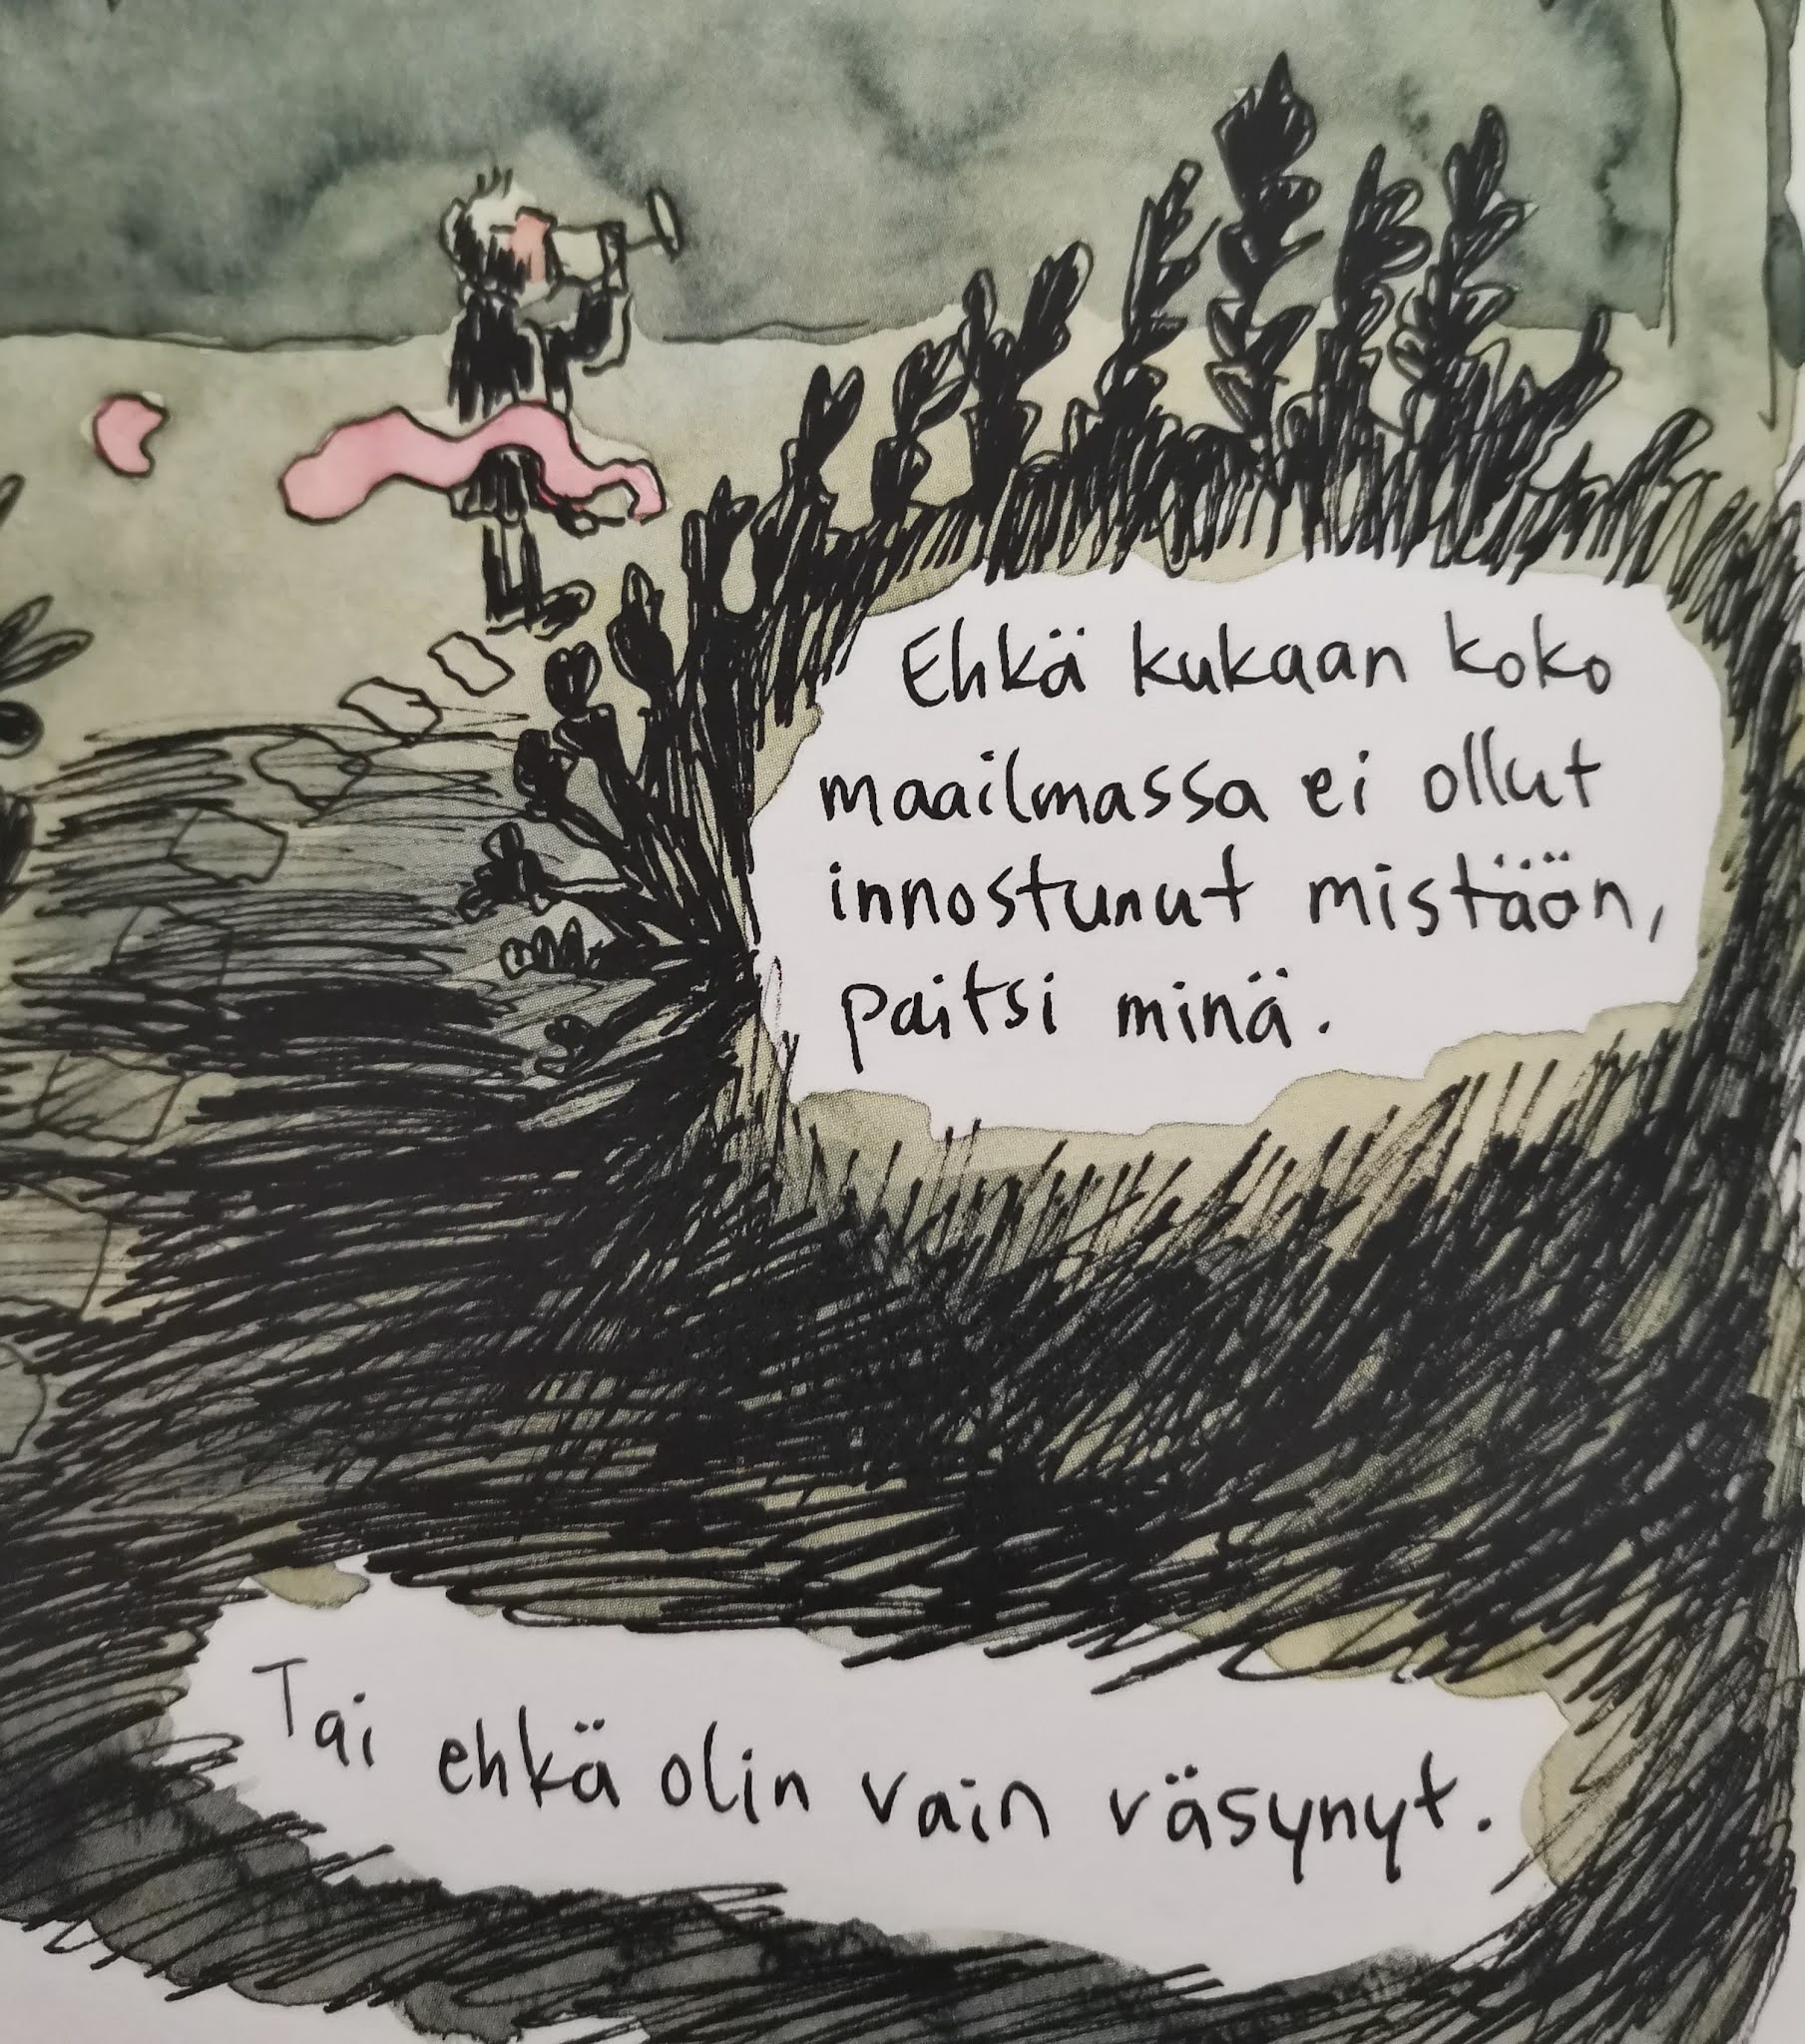 Ehkä kukaan koko
maailmassa ei ollut
innostunut mistään,
paitsi minä.
Tai ehkä olin vain väsynyt.